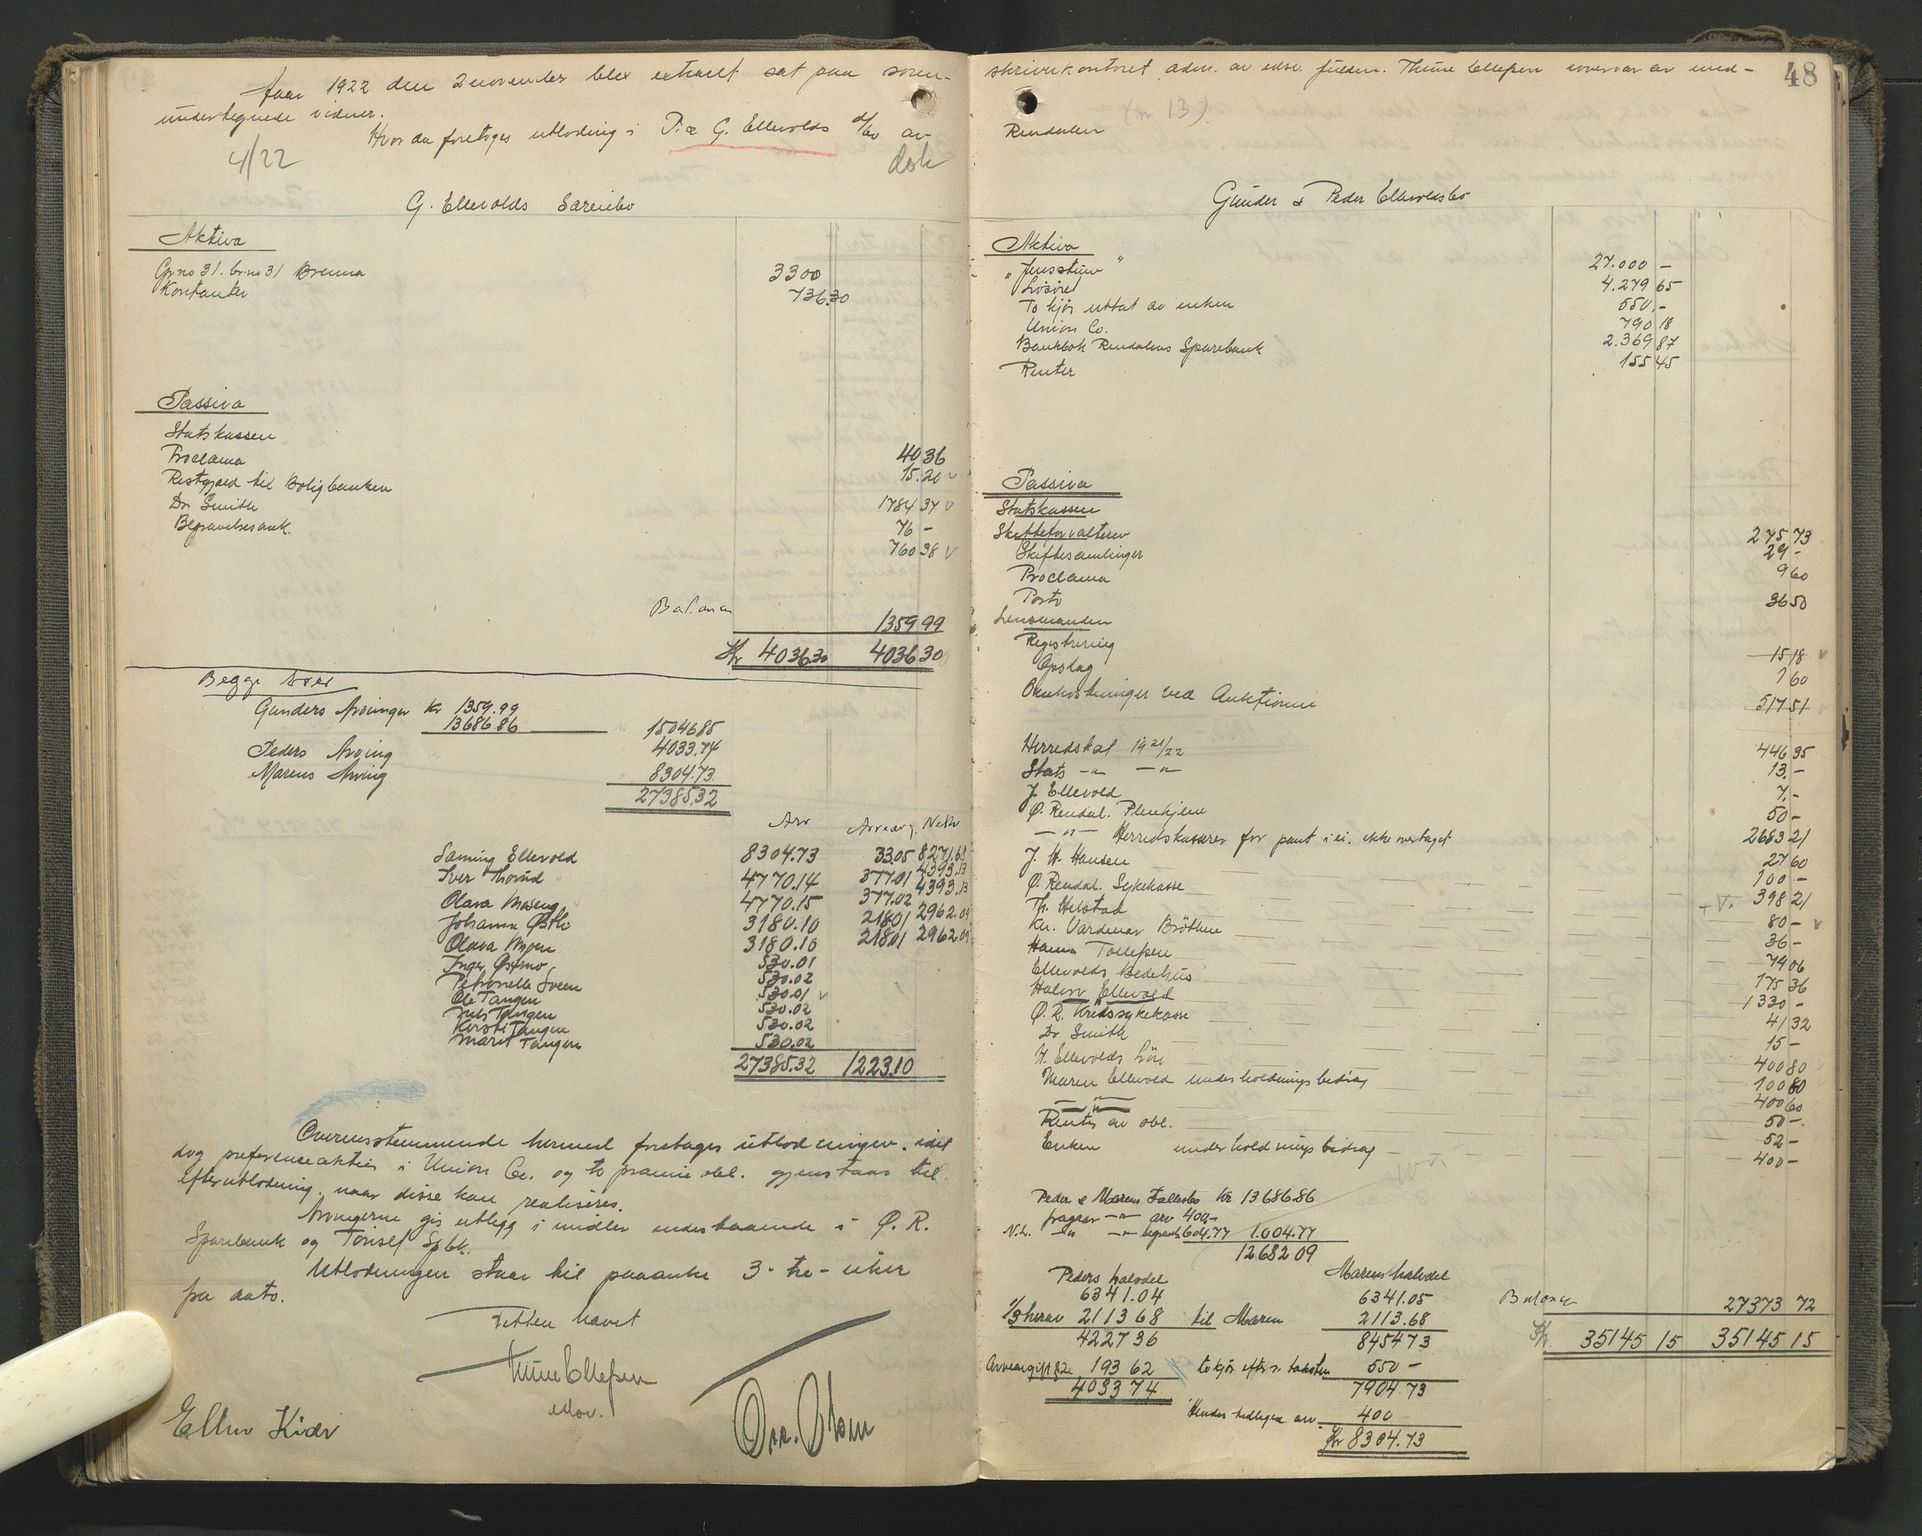 Aar 1922 den 2 november blev extraret sat paa soren-
skriverkontoret adm. av edsv. fuldm. Thune Ellefsen overvar av med-
undertegnede vidner.
Hvor da foretoges utlodning i P. & G. Ellevolds d/bo av
Rendalen
(nr 13).
48
4/22
dsk
G. Ellevolds Særeibo
Aktiva
Grno 31. brno 31 Brenna 3300
Kontanter 736.30
Passiva
Statskassen 40 36
Proclama 15.20
Restgjæld til Boligbanken 1784 37
Dr. Smith 76 -
Begravelsesomk. 760 38
Balance 1359.99
Kr 4036.30 4036 30
Begge boer
Gunders Arvinger Kr 1359.99
13686 86 15046 85
Peders Arving 4033.74
Marens Arving 8304.73
27385.32
Arv Arveavg. Netto
Sæming Ellevold 8304.73 33.05 8271.68
Iver 4770.14 377.01 4393.13
Olava Moseng 4770.15 377.02 4393.13
Johanna Østli 3180.10 218 01 2962.09
Olava Moen 3180.10 218 01 2962.09
Inger 530.01
Petronelle Sveen 530.02
Ole Tangen 530.01
Jens Tangen 530.02
Kirsti Tangen 530.02
Marit Tangen 530.02
27385.32 1223.10
Overensstemmende hermed foretages utlodningen. idet
dog preferenceaktier i Union Co. og to præmie obl. gjenstaar til
efterutlodning, naar disse kan realiseres.
Arvingerne gis utlegg i midler indestaaende i Ø. R.
Sparebank og Tønset Spbk.
Utlodningen staar til paaanke 3- tre- uker
fra dato.
Retten hævet
Thune Ellefsen
edsv.
Ellen Kidr
Orr. Olsen
Gunder & Peder Ellevoldsbo
Aktiva
"Jensstuen" 27.000 -
Løsøre 4.279 65
To kjør uttat av enken 550.-
Union Co. 790 18
Bankbok Rendalens Sparebank 2.369 87
Renter 155 45
Passiva
Statskassen 275 73
Skifteforvalteren
Skiftesamlinger 29 -
Proclama 9 60
Porto 36 50
Lensmanden
Registrering 15 18
Opslag 1 60
Omkostninger ved Auktionen 517 51
Herredskat 19 21/22 446 35
Stats -"- -"- 13.-
J. Ellevold 7.-
Ø. Rendal. Pleiehjem 50 -
-"- Herredskasserer for pant i ei. ikke overtaget 2683 21
J. H. Hansen 27 60
Ø. Rendal. Sykekasse 100 -
Th. Helstad 398 21
Kr. Vardenær Bröthen 80 -
Hanna Tollefsen 36 -
Ellevolds Bedehus 79 06
Halvor Ellevold 175 36
Ø. R. Kredssykekasse 1330 -
Dr Smith 41 32
H. Ellevolds Lön 15 -
Maren Ellevold underholdningsbidrag 400 80
-"- 100 80
400 60
Renter av obl. 50 -
52 -
Enken underholdningsbidrag 400 -
Peder & Marens Fællesbo Kr 13686.86
fragaar -"- arv 400.-
N.L. -"- -"- begravels 604.77 1.004.77
12682 09
Peders halvdel Marens halvdel
6341.04 6341.05
1/3 herav 2113 68 til Maren 2113.68
4227 36 8454 73
Arveavgift 193 62 to kjør efter n. taksten 550 -
4033 74 7904.73
Hendes tidligere arv 400
Kr 8304.73
Balance 27373 72
Kr. 35145 15 35145 15